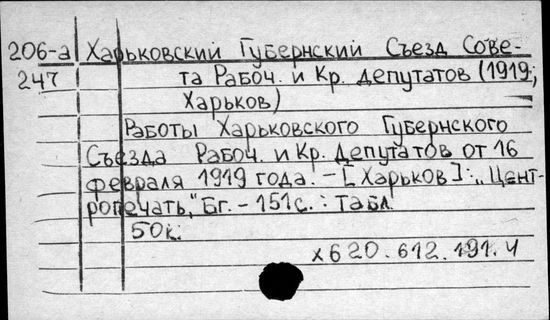 206-а Харьковский Губернский Съезд Сове-
247 та Рабоч. и Кр. депутатов (1919;
Харьков)
Работы Харьковского Губернского
Съезда Рабоч. и Кр. Депутатов от 16
февраля 1919 года. - [Харьков]: „Цент-
ропечать," Бг. - 151 с. : табл.
50к.
х620.612.191.4